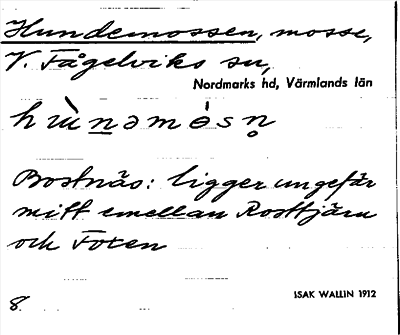 Hundemossen, mosse,
V. Fågelviks sn,
Nordmarks hd, Värmlands län
Bostnäs: ligger ungefär
mitt emellan Rosttjärn
och Foxen
ISAK WALLIN 1912
8.